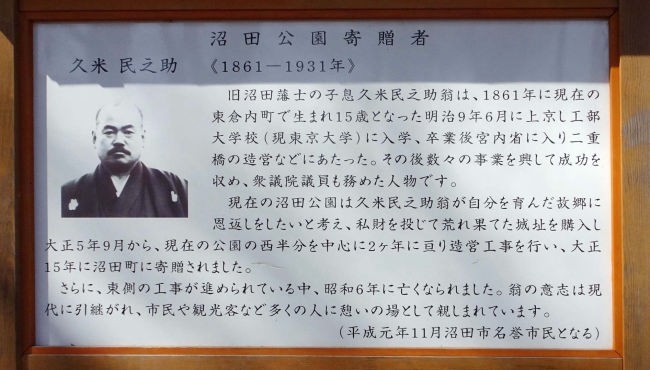 沼田公園寄贈者
久米 民之助 《1861―1931年》
旧沼田藩士の子息久米民之助翁は、1861年に現在の
東倉内町で生まれ15歳となった明治9年6月に上京し工部
大学校(現東京大学)に入学、卒業後宮内省に入り二重
橋の造営などにあたった。その後数々の事業を興して成功を
収め、衆議院議員も務めた人物です。
現在の沼田公園は久米民之助翁が自分を育んだ故郷に
恩返しをしたいと考え、私財を投じて荒れ果てた城址を購入し
大正5年9月から、現在の公園の西半分を中心に2ヶ年に亘り造営工事を行い、大正
15年に沼田町に寄贈されました。
さらに、東側の工事が進められている中、昭和6年に亡くなられました。翁の意志は現
代に引継がれ、市民や観光客など多くの人に憩いの場として親しまれています。
(平成元年11月沼田市名誉市民となる)